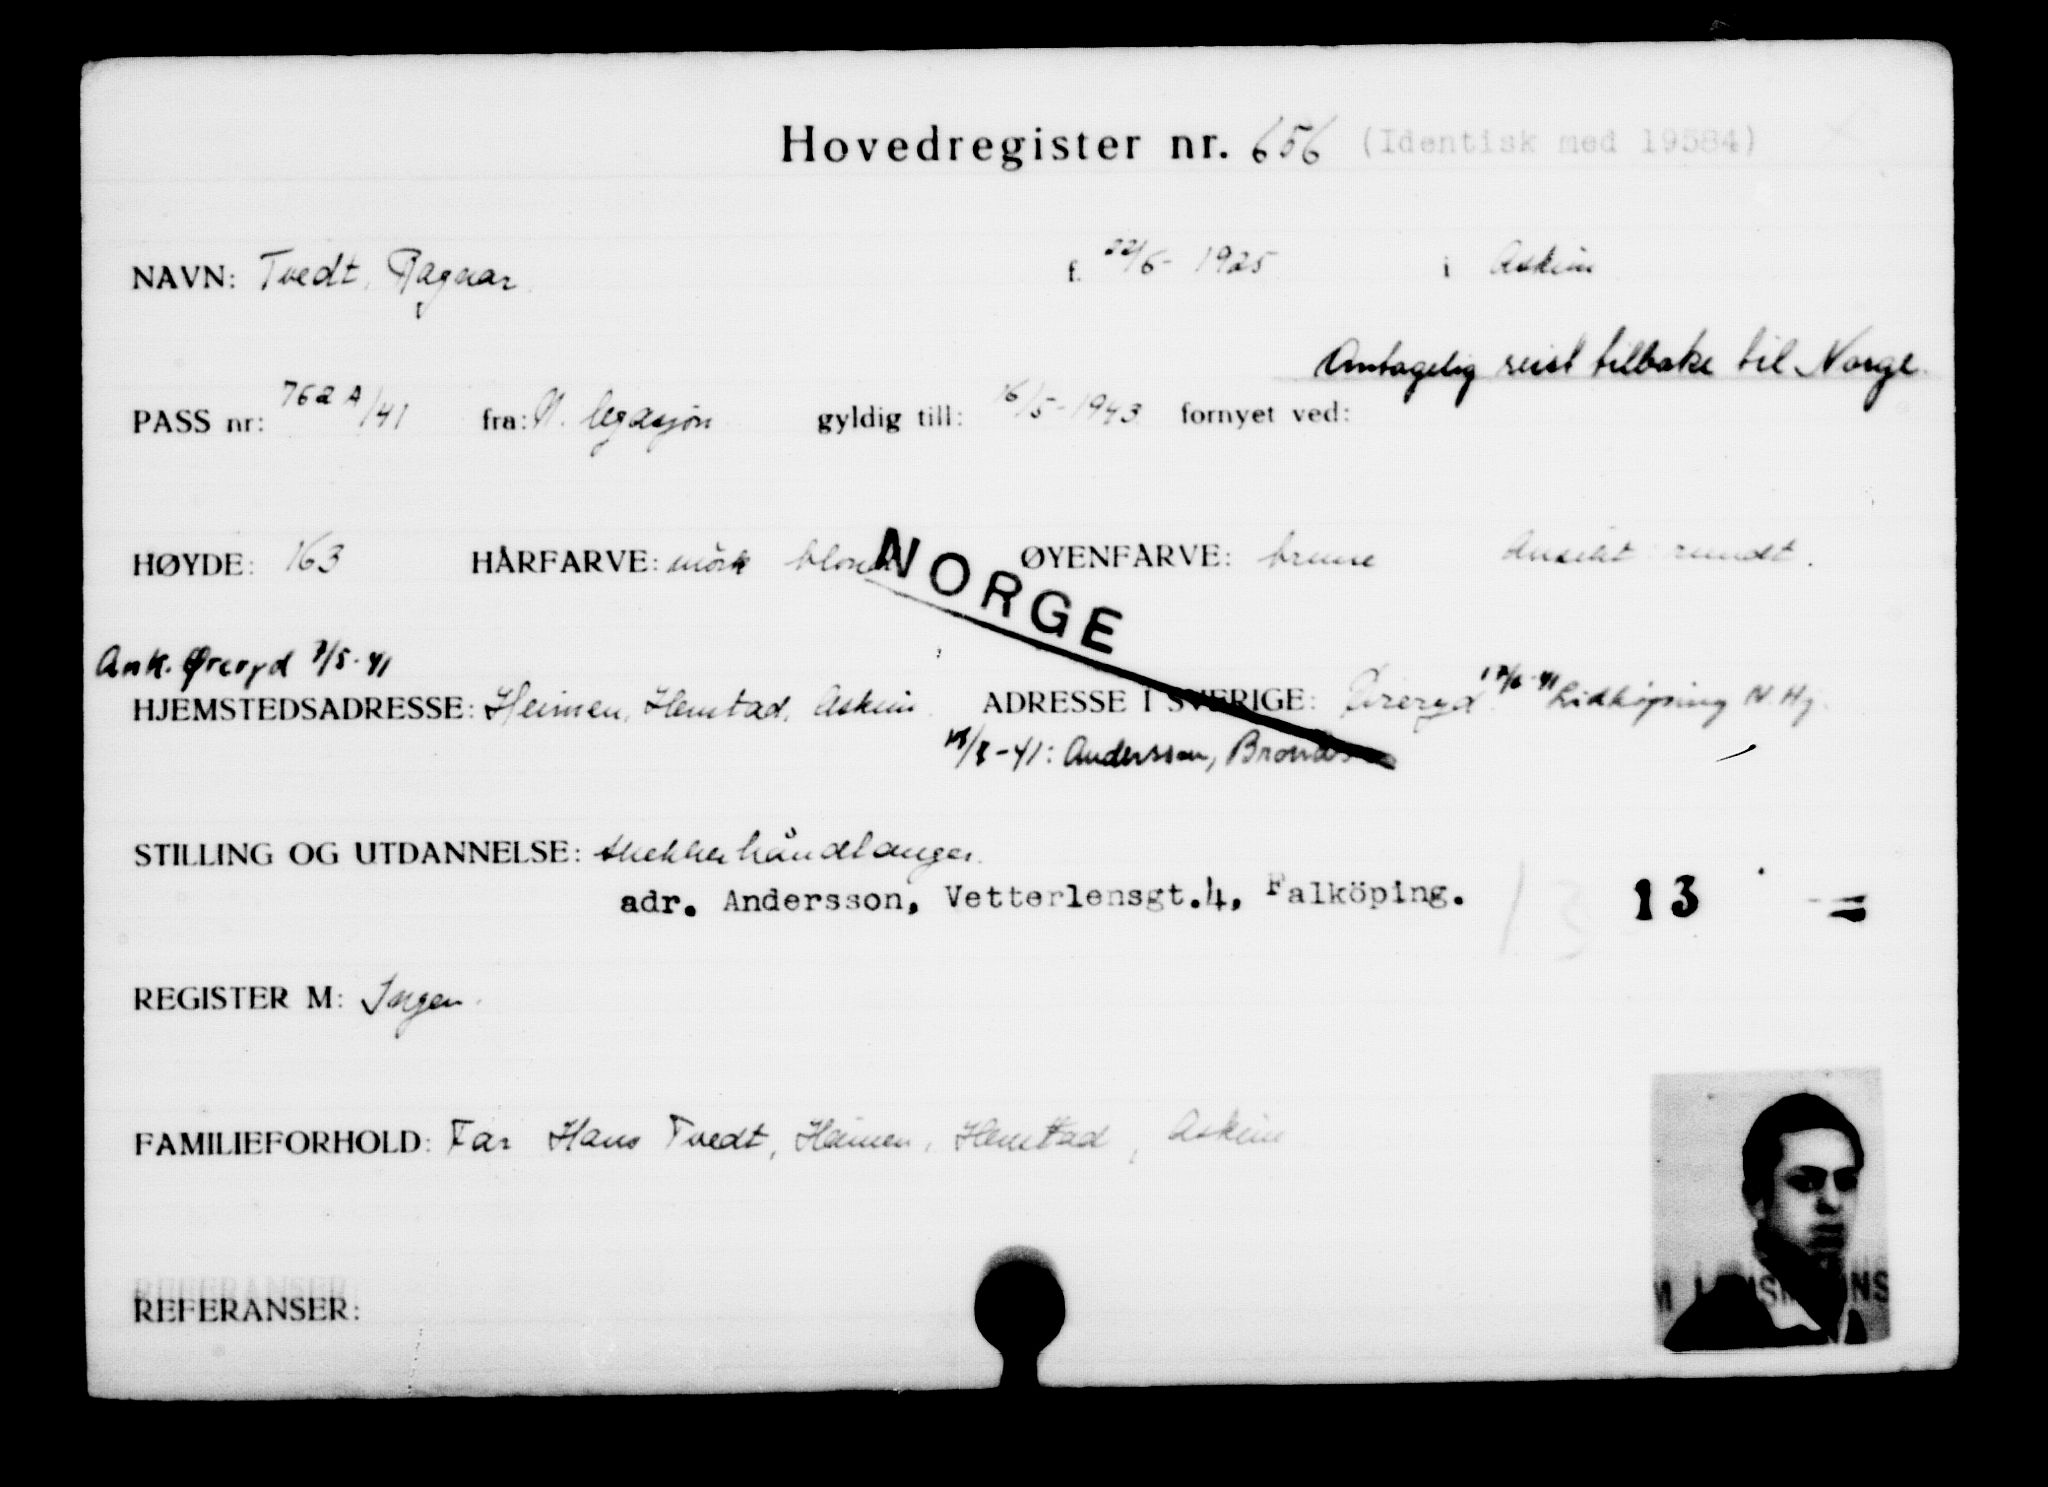 Hovedregister nr. 656 (Identisk med 19584)
NAVN: Tvedt, Ragnar f. 22/6- 1925 i Askim
Antagelig reist tilbake til Norge
PASS nr: 762 A/41 fra: N. legasjon gyldig till: 16/5-1943 fornyet ved:
HØYDE: 163 HÅRFARVE: mörk blond ØYENFARVE: brune Ansikt rundt.
NORGE
Ank. Øreryd 7/5-41
HJEMSTEDSADRESSE: Heimen, Henstad, Askim ADRESSE I SVERIGE: Øreryd Lidköping N. Hj.
-41: Andersson,
STILLING OG UTDANNELSE: håndlanger.
adr. Andersson, Vetterlensgt.4, Falköping. 13 13 =
REGISTER M: Ingen.
FAMILIEFORHOLD: Far Hans Tvedt, Heimen, Henstad, Askim
REFERANSER: